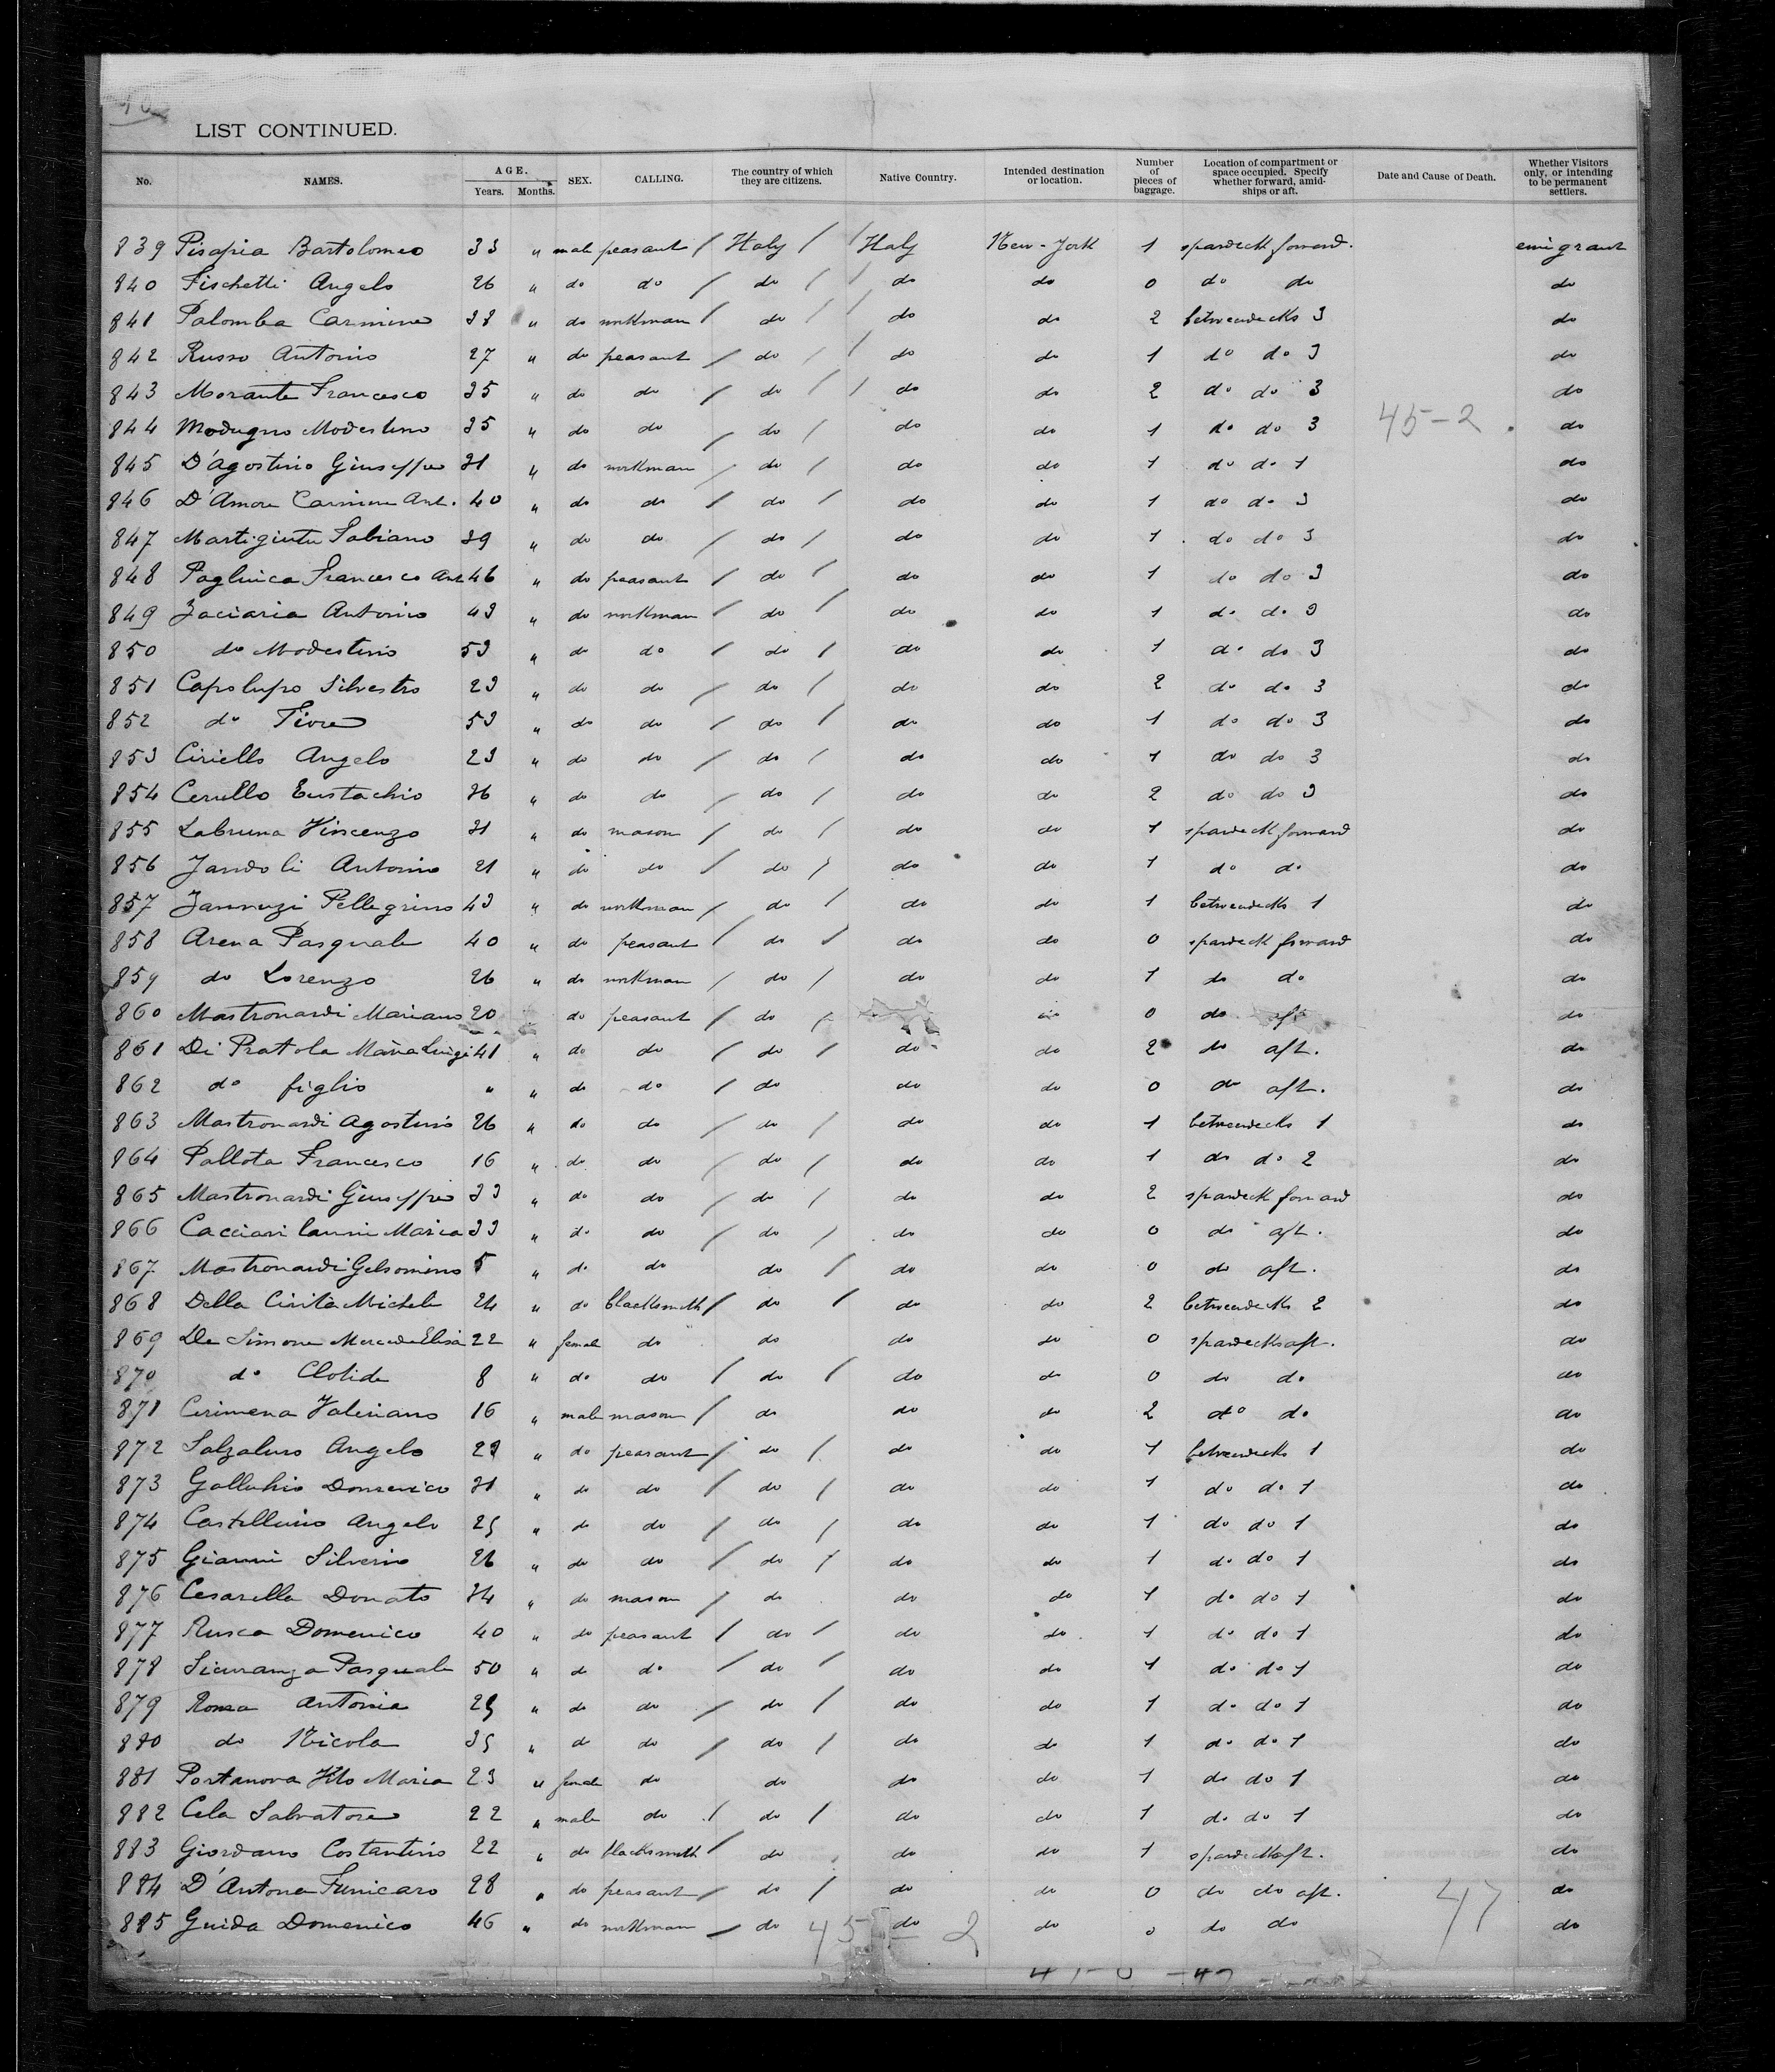 LIST CONTINUED.
No. NAMES. AGE. Years. Months. SEX. CALLING. The country of which they are citizens. Native Country. Intended destination or location. Number of pieces of baggage. Location of compartment or space occupied. Specify whether forward, amidships or aft. Date and Cause of Death. Whether Visitors only, or intending to be permanent settlers.
839 Pisapia Bartolomeo 33 " male peasant / Italy / / Italy New-York 1 spardeck forward. emigrant
840 Fischetti Angelo 26 " do do / do / / do do 0 do do do
841 Palomba Carmine 38 " do workman / do / / do do 2 betweendecks 3 do
842 Russo Antonio 27 " do peasant / do / / do do 1 do do 3 do
843 Morante Francesco 35 " do do / do / / do do 2 do do 3 do
844 Modugno Modestino 35 " do do / do / do do 1 do do 3 45-2 do
845 D'Agostino Giuseppe 31 " do workman / do / do do 1 do do 1 do
846 D'Amore Carmine Ant. 40 " do do / do / do do 1 do do 3 do
847 Sabiano 39 " do do / do / do do 1 do do 3 do
848 Francesco Ant 46 " do peasant / do / do do 1 do do 3 do
849 Zaciaria Antonio 43 " do workman / do / do do 1 do do 3 do
850 do Modestino 53 " do do / do / do do 1 do do 3 do
851 Capolupo Silvestro 23 " do do / do / do do 2 do do 3 do
852 do Fiore 53 " do do / do / do do 1 do do 3 do
853 Ciriello Angelo 23 " do do / do / do do 1 do do 3 do
854 Cerullo Eustachio 36 " do do / do / do do 2 do do 3 do
855 Labruna Vincenzo 31 " do mason / do / do do 1 spardeck forward do
856 Jandoli Antonio 21 " do do / do / do do 1 do do do
857 Jannuzi Pellegrino 43 " do workman / do / do do 1 betweendecks 1 do
858 Arena Pasquale 40 " do peasant / do / do do 0 spardeck forward do
859 do Lorenzo 26 " do workman / do / do do 1 do do do
860 Mastronardi Mariano 20 do peasant / do / do 0 do aft do
861 Di Pratola Maria Luigi 41 " do do / do / do do 2 do aft. do
862 do figlio " " do do / do do do 0 do aft. do
863 Mastronardi Agostino 26 " do do / do / do do 1 betweendecks 1 do
864 Pallota Francesco 16 " do do / do / do do 1 do do 2 do
865 Mastronardi Giuseppe 33 " do do / do / do do 2 spardeck forward do
866 Maria 33 " do do / do / do do 0 do aft. do
867 Mastronardi Gelsomino 5 " do do do / do do 0 do aft. do
868 Della Civita Michele 24 " do blacksmith / do / do do 2 betweendecks 2 do
869 De Simone Elisa 22 " female do do do do 0 spardecks aft. do
870 do Clotide 8 " do do / do / do do 0 do do do
871 Cerimena Valeriano 16 " male mason / do do do 2 do do do
872 Angelo 23 " do peasant / do / do do 1 betweendecks 1 do
873 Domenico 31 " do do / do / do do 1 do do 1 do
874 Castellucio Angelo 25 " do do / do / do do 1 do do 1 do
875 Gianni Silverio 26 " do do / do / do do 1 do do 1 do
876 Cesarella Donato 34 " do mason / do do do 1 do do 1 do
877 Rusca Domenico 40 " do peasant / do / do do 1 do do 1 do
878 Sicuranza Pasquale 50 " do do / do / do do 1 do do 1 do
879 Roma Antonia 25 " do do / do / do do 1 do do 1 do
880 do Nicola 35 " do do / do / do do 1 do do 1 do
881 Portanova Maria 23 " female do do do do 1 do do 1 do
882 Cela Salvatore 22 " male do / do / do do 1 do do 1 do
883 Giordano Costantino 22 " do blacksmith / do do do 1 spardeck aft. do
884 D'Antona Funicaro 28 " do peasant / do / do do 0 do do aft. 47 do
885 Guida Domenico 46 " do workman / do do do 0 do do do
45 - 2